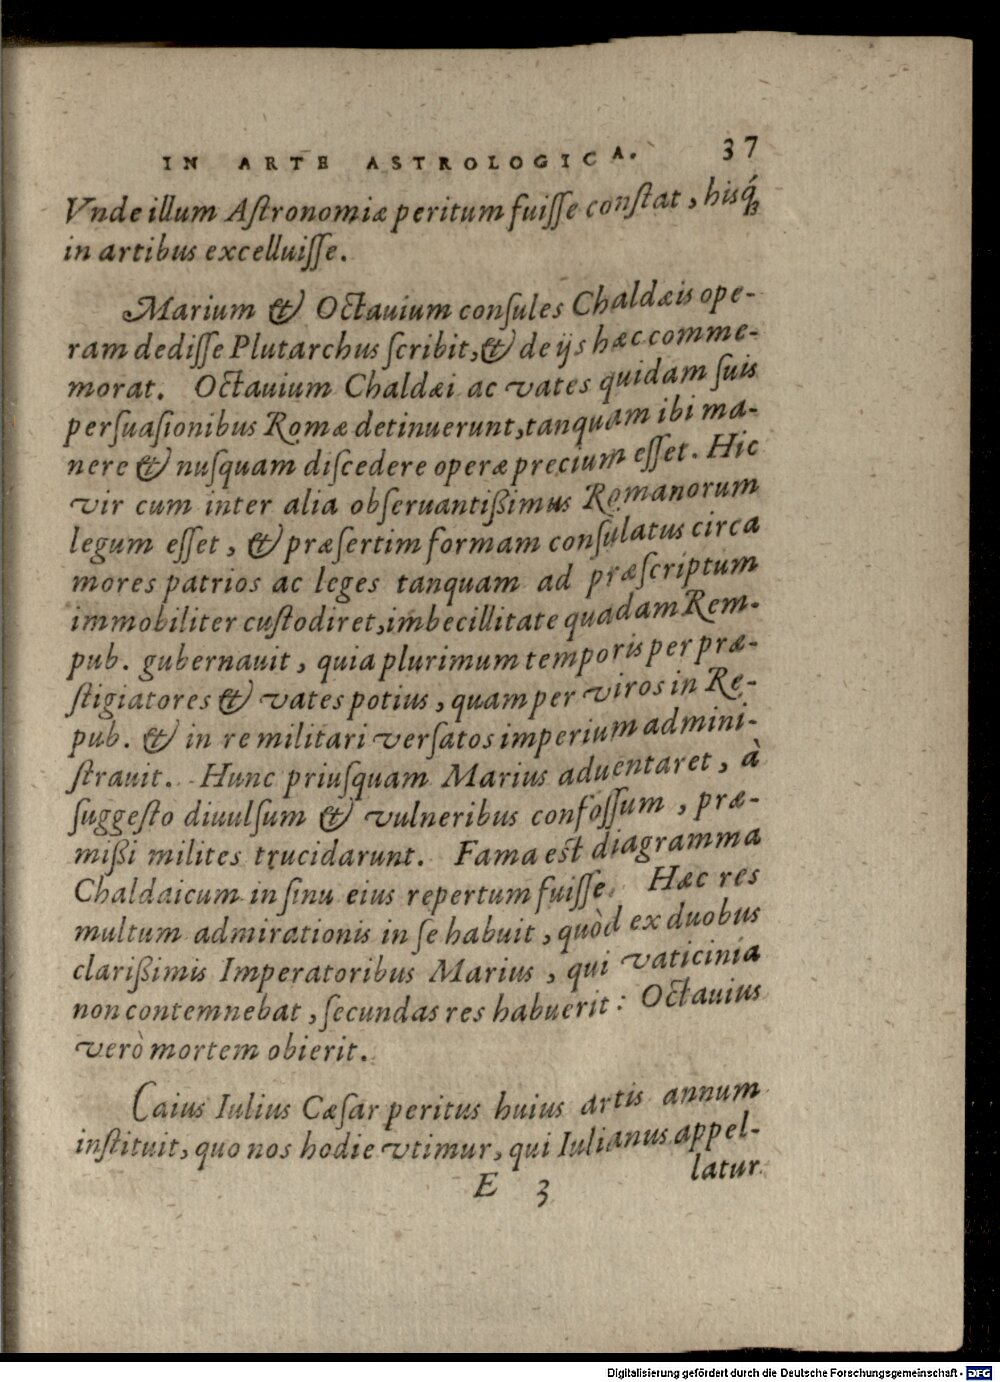 IN ARTE ASTROLOGICA. 37
Vnde illum Aſtronomiæ peritum fuiſſe conſtat, hisq́ꝫ
in artibus excelluiſſe.
Marium & Octauium conſules Chaldæis ope-
ram dediſſe Plutarchus ſcribit, & de ijs hæc comme-
morat. Octauium Chaldæi ac vates quidam ſuis
perſuaſionibus Romæ detinuerunt, tanquam ibi ma-
nere & nuſquam diſcedere operæ precium eſſet. Hic
vir cum inter alia obſeruantißimus Romanorum
legum eſſet, & præſertim formam conſulatus circa
mores patrios ac leges tanquam ad præſcriptum
immobiliter cuſtodiret, imbecillitate quadam Rem-
pub. gubernauit, quia plurimum temporis per præ-
ſtigiatores & vates potius, quam per viros in Re-
pub. & in re militari verſatos imperium admini-
ſtrauit. Hunc priuſquam Marius aduentaret, à
ſuggeſto diuulſum & vulneribus confoſſum, præ-
mißi milites trucidarunt. Fama eſt diagramma
Chaldaicum in ſinu eius repertum fuiſſe. Hæc res
multum admirationis in ſe habuit, quòd ex duobus
clarißimis Imperatoribus Marius, qui vaticinia
non contemnebat, ſecundas res habuerit: Octauius
verò mortem obierit.
Caius Iulius Cæſar peritus huius artis annum
inſtituit, quo nos hodie vtimur, qui Iulianus appel-
latur
E 3
Digitalisierung gefördert durch die Deutsche Forschungsgemeinschaft - DFG